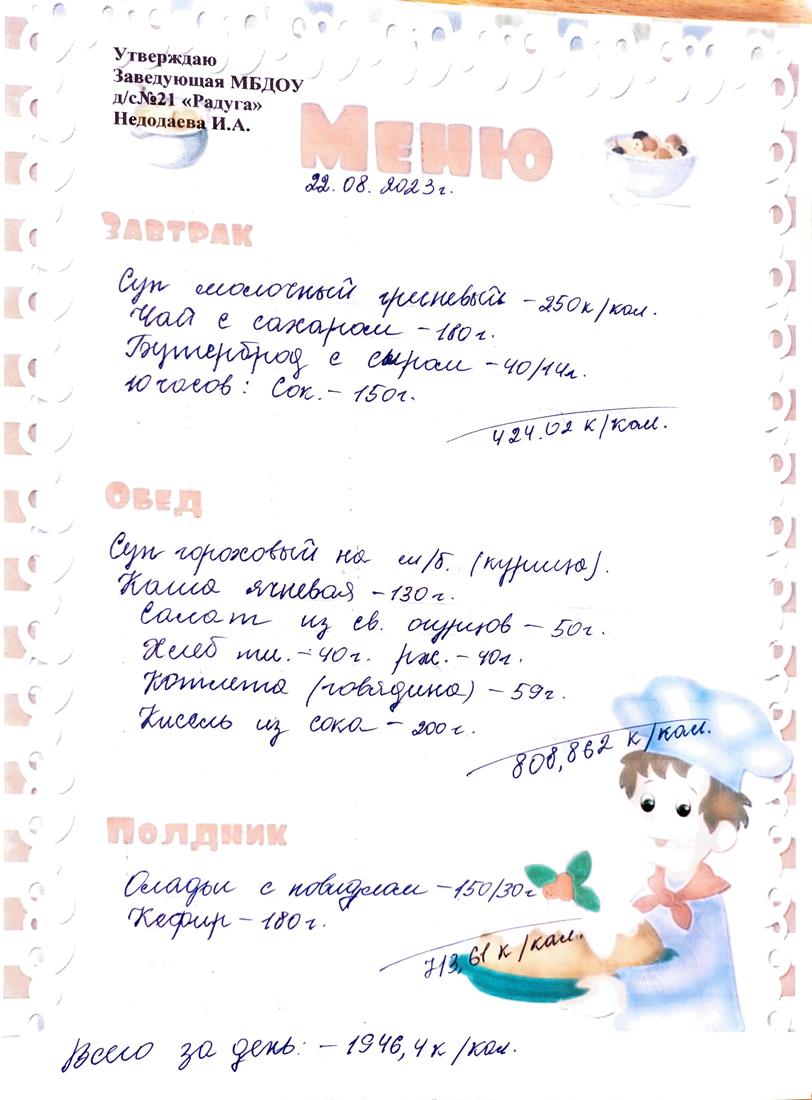 Утверждаю
Заведующая МБДОУ
д/с№21 «Радуга»
Недодаева И.А.
Меню
22.08.2023г.
Завтрак
Суп молочный гречневый - 250к/кал.
Чай с сахаром - 180г.
Бутерброд с сыром - 40/14г.
10 часов: Сок. - 150г.
424.02 к/кал.
Обед
Суп гороховый на м/б. (курица).
Каша ячневая - 130г.
Салат из св. огурцов - 50г.
Хлеб пш. - 40г. рж. - 40г.
Котлета (говядина) - 59г.
Кисель из сока - 200г.
808,862 к/кал.
Полдник
Оладьи с повидлом - 150/30г
Кефир - 180г.
713,61 к/кал.
Всего за день: - 1946,4 к/кал.